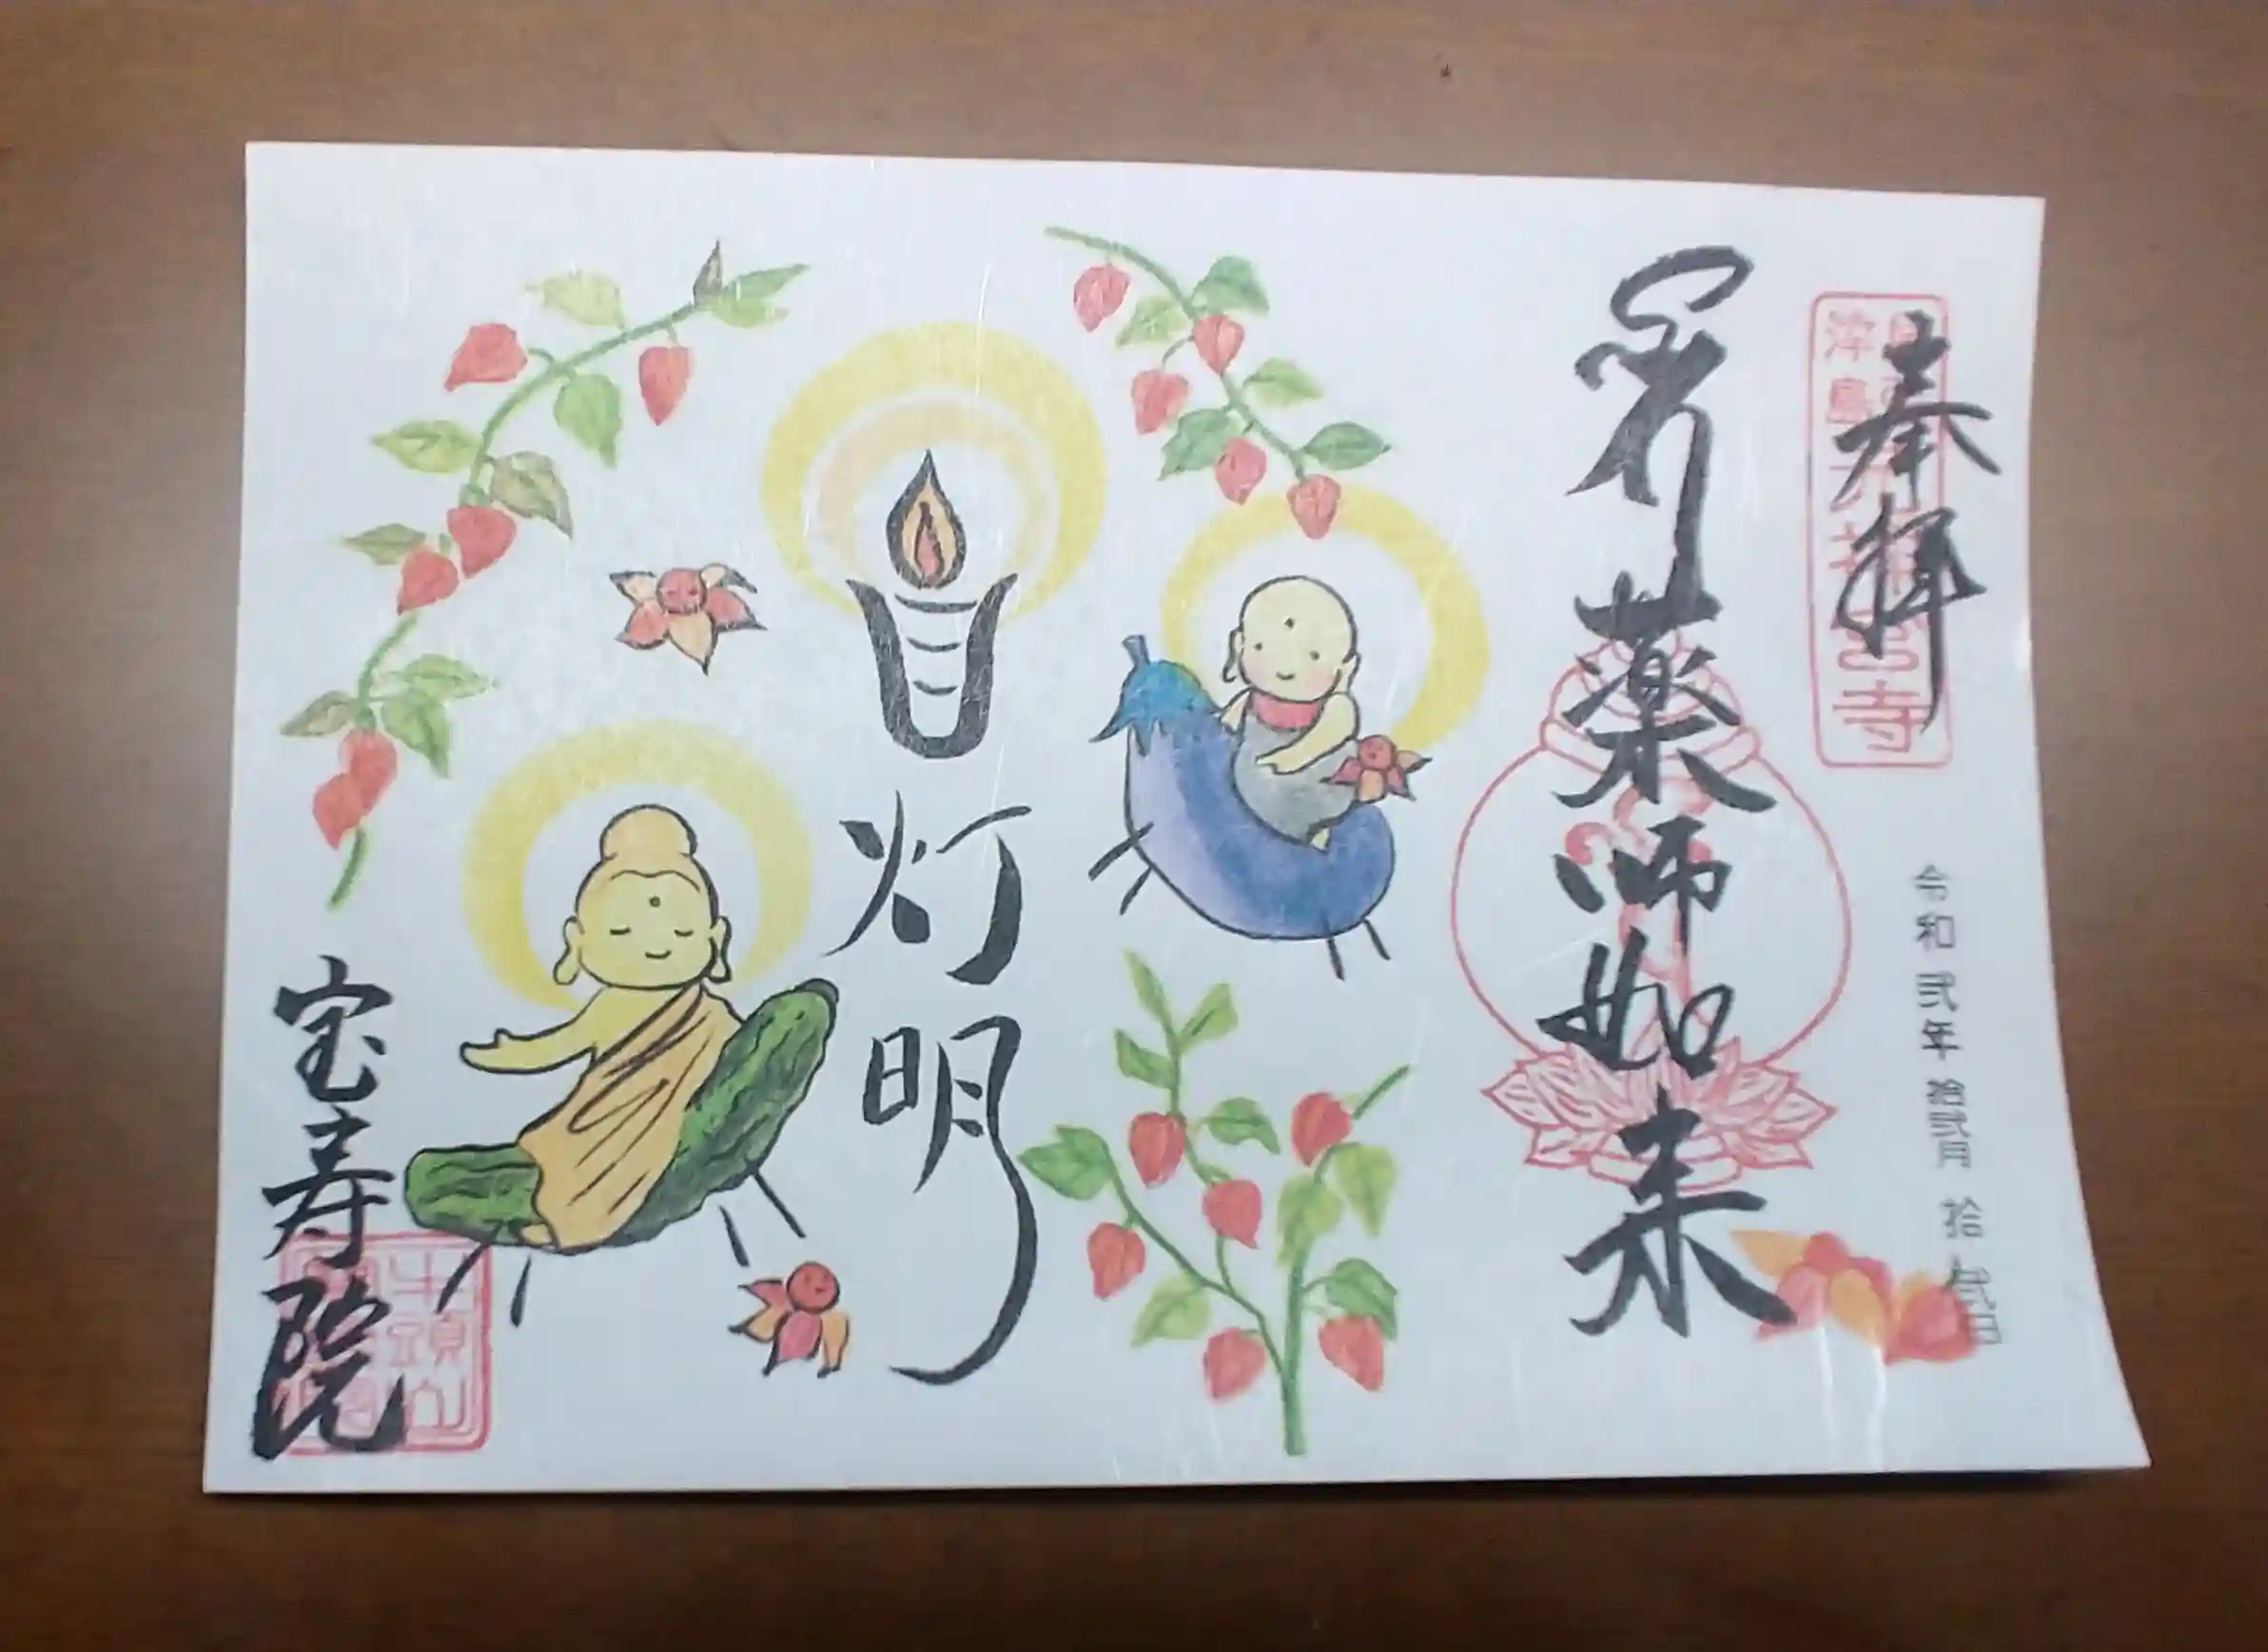 奉拝
薬師如来
令和弐年 拾弐月 拾弐日
灯明
宝寿院